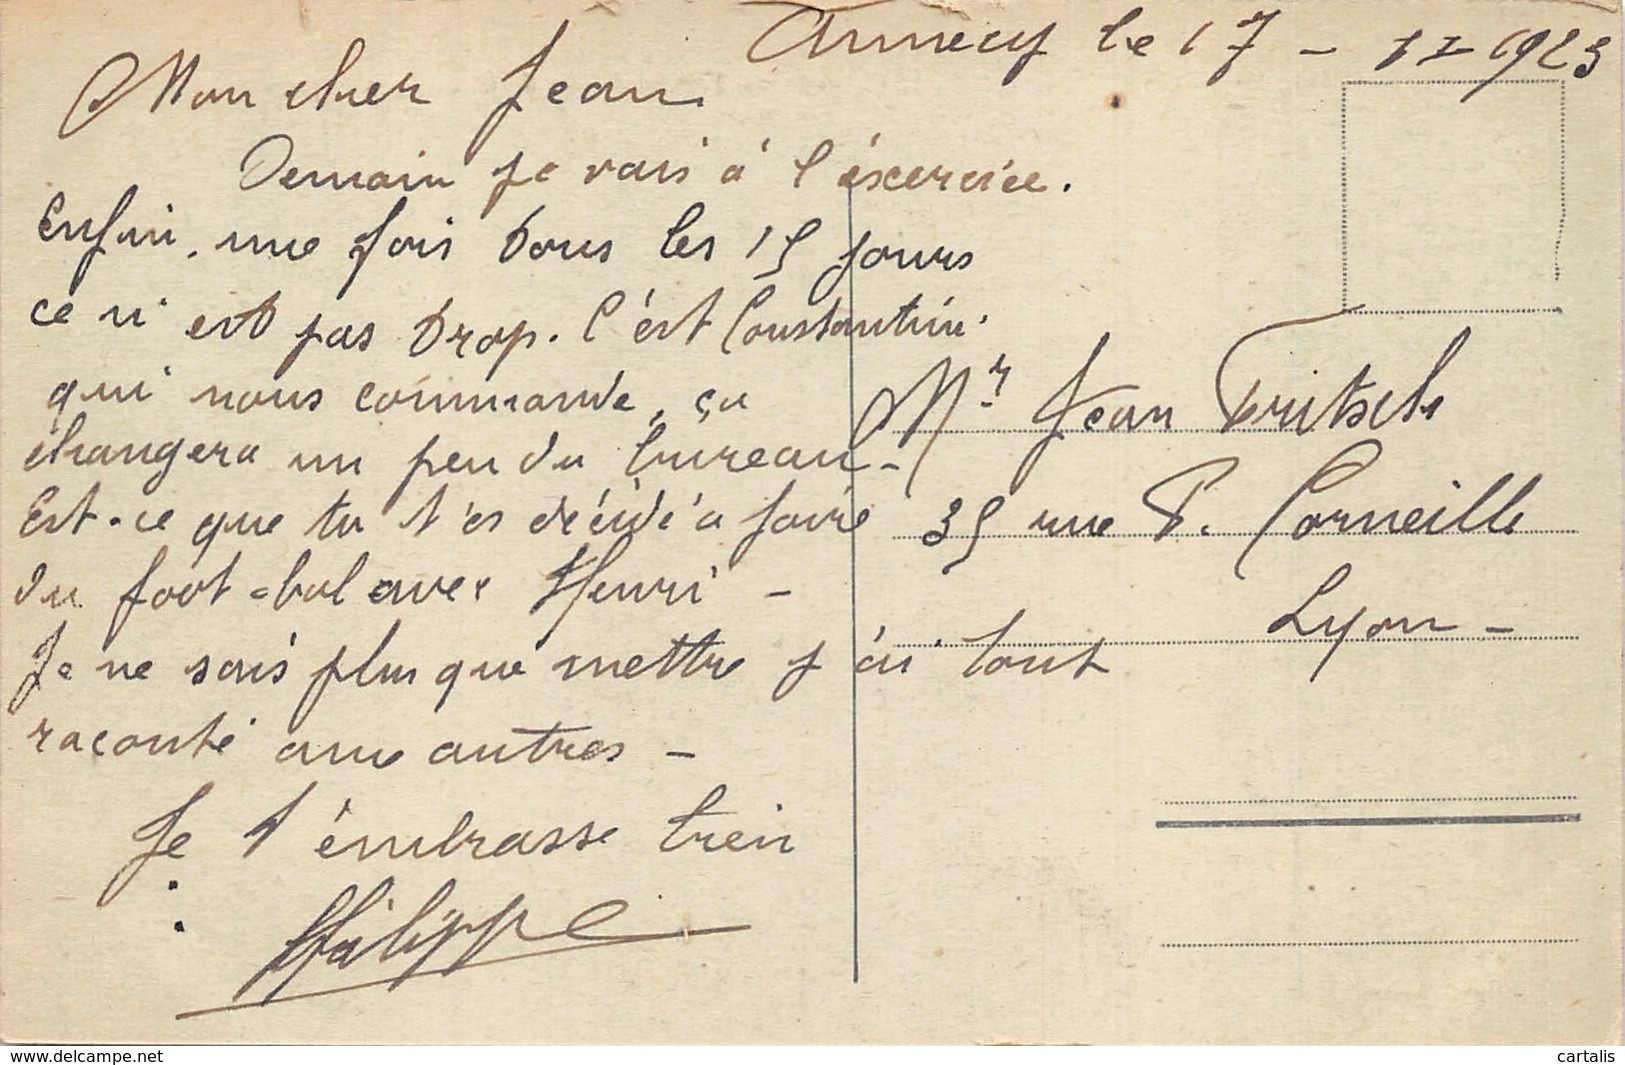 Annecy le 17 - II 1923
Mon cher Jean
Demain je vais à l'éxercice.
Enfin, une fois tous les 15 jours
ce n'est pas trop. C'est Constantin
qui nous commande, ça
changera un peu du bureau -
Est-ce que tu t'es décidé à faire
du foot-bal avec Henri -
Je ne sais plus que mettre j'ai tout
raconté aux autres -
Je t'embrasse bien
Philippe
Mr Jean Fritsch
35 rue P. Corneille
Lyon -
www.delcampe.net
cartalis